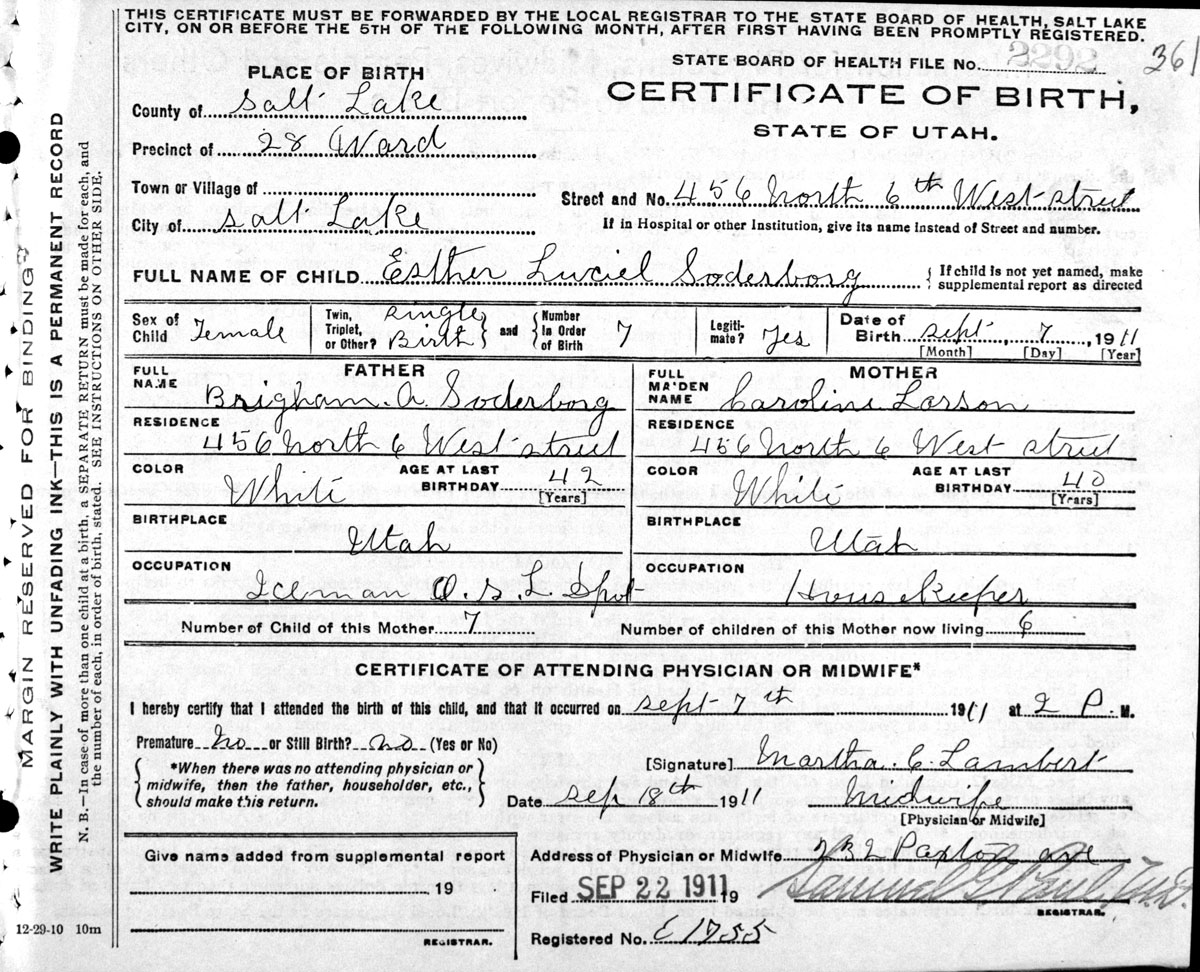 THIS CERTIFICATE MUST BE FORWARDED BY THE LOCAL REGISTRAR TO THE STATE BOARD OF HEALTH, SALT LAKE
CITY, ON OR BEFORE THE 5TH OF THE FOLLOWING MONTH, AFTER FIRST HAVING BEEN PROMPTLY REGISTERED.
STATE BOARD OF HEALTH FILE NO. 2292
361
PLACE OF BIRTH
CERTIFICATE OF BIRTH,
STATE OF UTAH.
County of Salt Lake
Precinct of 28 Ward
Town or Village of
Street and No. 456 North 6th West street
City of Salt Lake
If in Hospital or other Institution, give its name instead of Street and number.
FULL NAME OF CHILD Esther Luciel Soderborg { If child is not yet named, make supplemental report as directed
Sex of Child Female
Twin, Triplet, or Other? Single Birth } and { Number in Order of Birth 7
Legiti-mate? Yes
Date of Birth Sept 7, 1911
[Month] [Day] [Year]
FATHER
FULL NAME Brigham. A. Soderborg
RESIDENCE 456 North 6 West street
COLOR White
AGE AT LAST BIRTHDAY 42 [Years]
BIRTHPLACE Utah
OCCUPATION Iceman O. S. L. Dpot
MOTHER
FULL MAIDEN NAME Caroline Larson
RESIDENCE 456 North 6 West street
COLOR White
AGE AT LAST BIRTHDAY 40 [Years]
BIRTHPLACE Utah
OCCUPATION House Keeper
Number of Child of this Mother 7
Number of children of this Mother now living 6
CERTIFICATE OF ATTENDING PHYSICIAN OR MIDWIFE*
I hereby certify that I attended the birth of this child, and that it occurred on Sept 7th 1911 at 2 P. M.
Premature No or Still Birth? no (Yes or No)
*When there was no attending physician or
midwife, then the father, householder, etc.,
should make this return.
[Signature] Martha C. Lambert
Date Sep 18th 1911
Midwife
[Physician or Midwife]
Give name added from supplemental report
19
REGISTRAR.
12-29-10 10m
Address of Physician or Midwife 232 Paxton ave
Filed SEP 22 1911 19
REGISTRAR.
Registered No. E 1755
MARGIN RESERVED FOR BINDING
WRITE PLAINLY WITH UNFADING INK—THIS IS A PERMANENT RECORD
N. B.—In case of more than one child at a birth, a SEPARATE RETURN must be made for each, and
the number of each, in order of birth, stated. SEE INSTRUCTIONS ON OTHER SIDE.